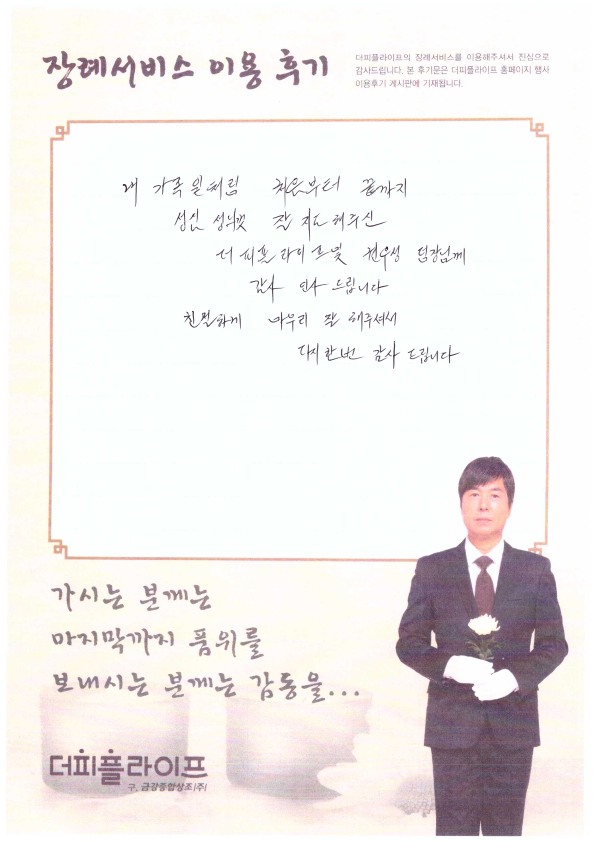 장례서비스 이용 후기
더피플라이프의 장례서비스를 이용해주셔서 진심으로
감사드립니다. 본 후기문은 더피플라이프 홈페이지 행사
이용후기 게시판에 기재됩니다.
내 가족 일처럼 처음부터 끝까지
성심 성의껏 잘 지도해주신
더피플라이프및 권우성 팀장님께
감사 인사 드립니다
친절하게 마무리 잘 해주셔서
다시한번 감사 드립니다
가시는 분께는
마지막까지 품위를
보내시는 분께는 감동을...
더피플라이프
구. 금강종합상조(주)